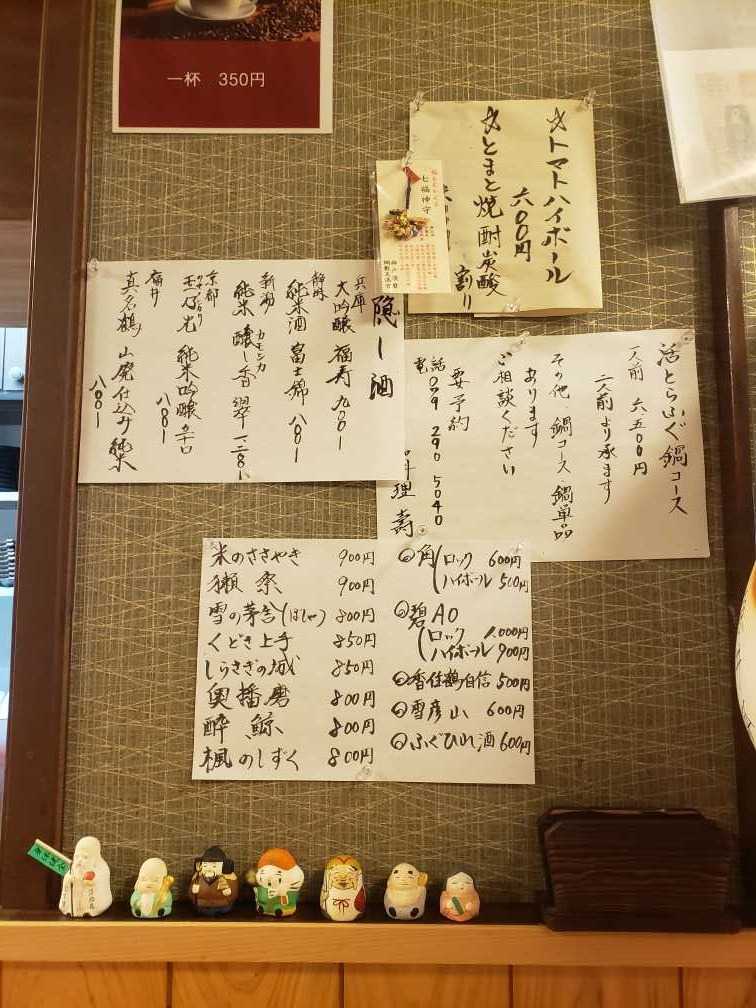 一杯 350円
トマトハイボール
六〇〇円
とまと焼酎炭酸
割り
七福神守
隠し酒
兵庫
大吟醸 福寿 九〇〇
静岡
純米酒 富士錦 八〇〇
新潟
カモシカ
純米 醸し香翠
京都
玉乃光 純米吟醸 辛口
八〇〇
福井
真名鶴 山廃仕込み純米
八〇〇
活とらふぐ鍋コース
一人前 六五〇〇円
二人前より承ます
その他、鍋コース、鍋単品
あります
ご相談ください
要予約
電話 079 290 5040
料理 寿
米のささやき 900円
獺祭 900円
雪の茅舎(ぼしゃ) 800円
くどき上手 850円
しらさぎの城 850円
奥播磨 800円
酔鯨 800円
楓のしずく 800円
角 ロック 600円
ハイボール 500円
碧AO
ロック 1,000円
ハイボール 900円
香住鶴 自信 500円
雪彦山 600円
ふぐひれ酒 600円